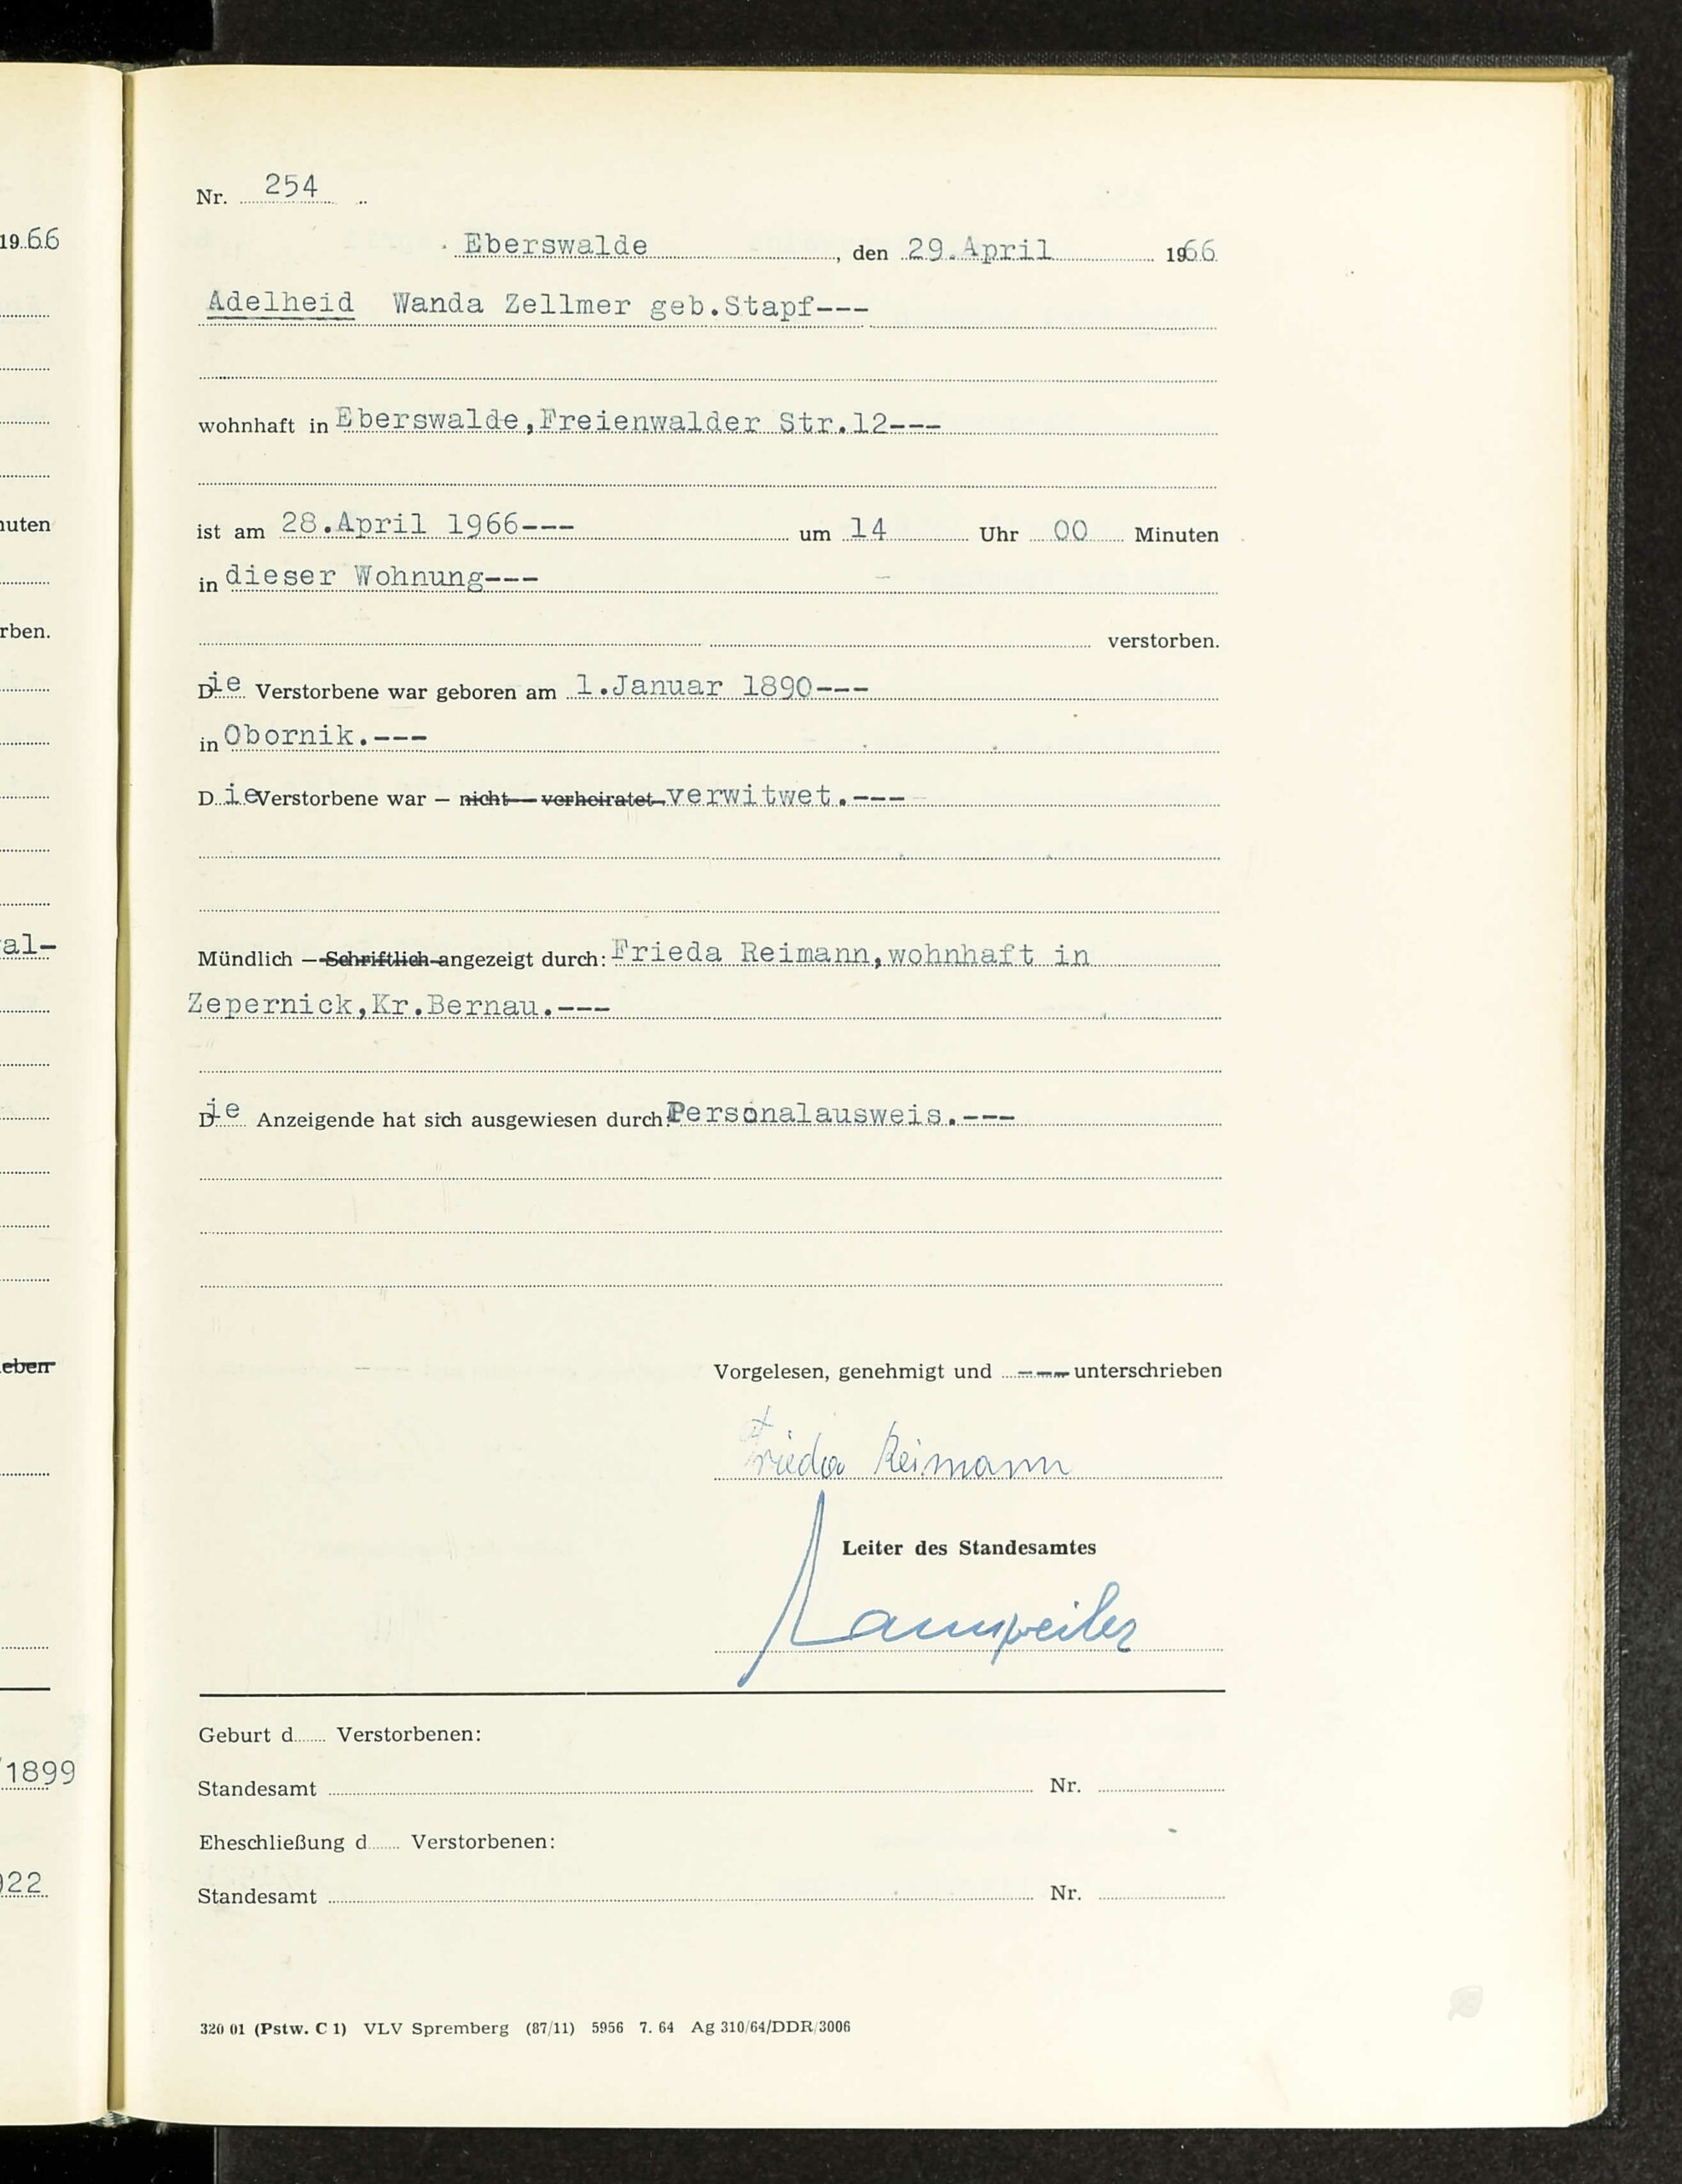 Nr. 254
1966
Eberswalde, den 29.April 1966
Adelheid Wanda Zellmer geb.Stapf---
wohnhaft in Eberswalde,Freienwalder Str.12---
nuten
ist am 28.April 1966--- um 14 Uhr 00 Minuten
in dieser Wohnung---
rben.
verstorben.
Die Verstorbene war geboren am 1.Januar 1890---
in Obornik.---
Die Verstorbene war — nicht — verheiratet verwitwet.---
al-
Mündlich — Schriftlich angezeigt durch: Frieda Reimann,wohnhaft in
Zepernick,Kr.Bernau.---
Die Anzeigende hat sich ausgewiesen durch: Personalausweis.---
eben
Vorgelesen, genehmigt und --- unterschrieben
Frieda Reimann
Leiter des Standesamtes
Geburt d...... Verstorbenen:
/1899
Standesamt Nr.
Eheschließung d...... Verstorbenen:
922
Standesamt Nr.
320 01 (Pstw. C 1) VLV Spremberg (87/11) 5956 7. 64 Ag 310/64/DDR/3006